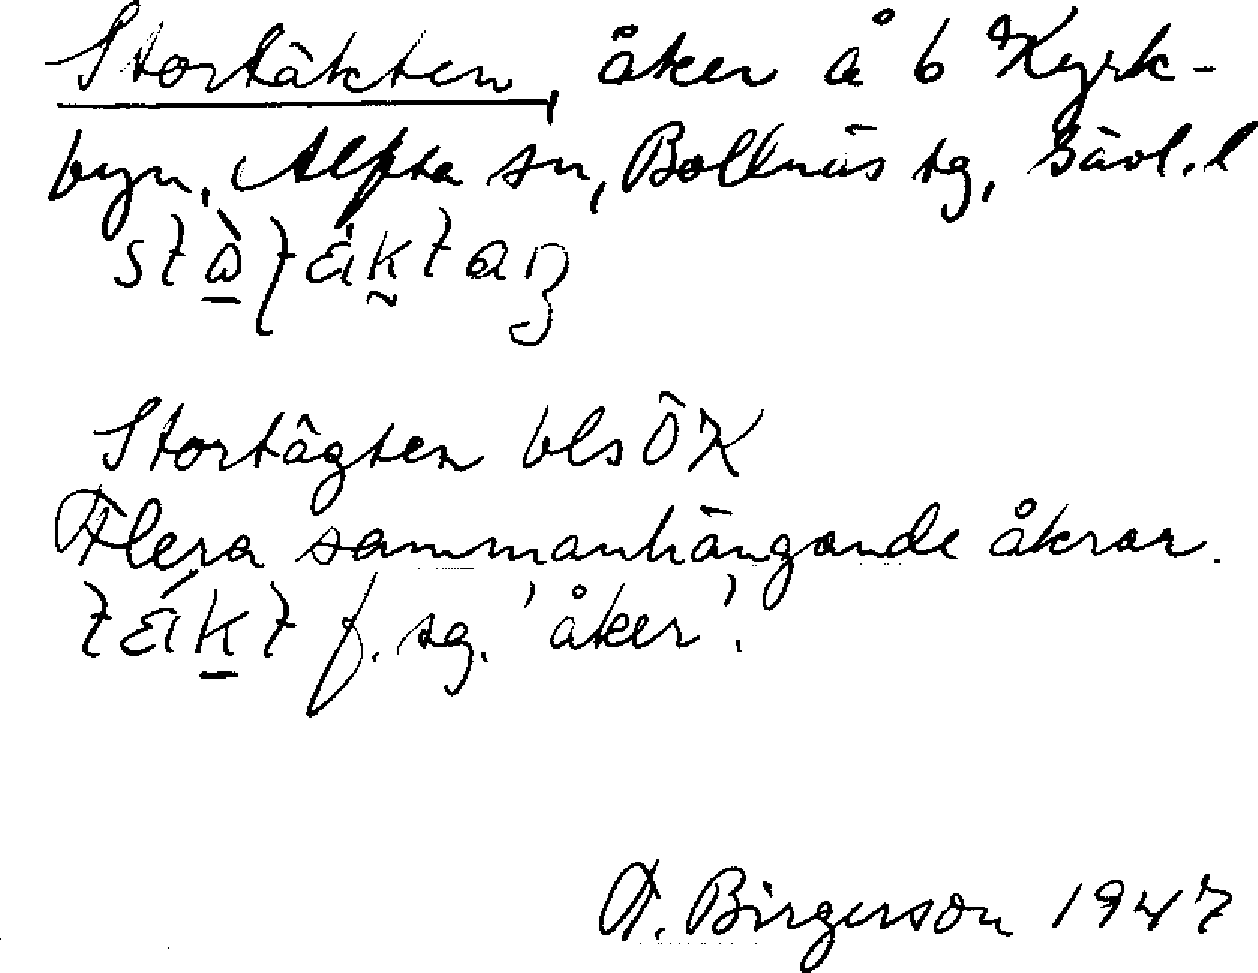 Stortäkten, åker å 6 Kyrk-
byn, Alfta sn, Bollnäs tg, Gävl. l
Stortägten bls ÖK
Flera sammanhängande åkrar.
f. sg. 'åker'.
A. Birgerson 1947